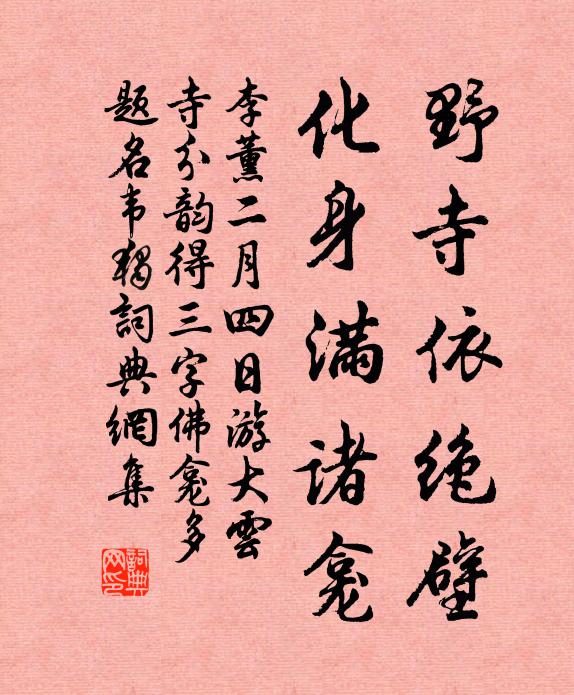 野寺依绝壁
化身满诸龛
李薰二月四日游大雲
寺分韵得三字佛龛多
题名韦獨詞典網集
詞典网印